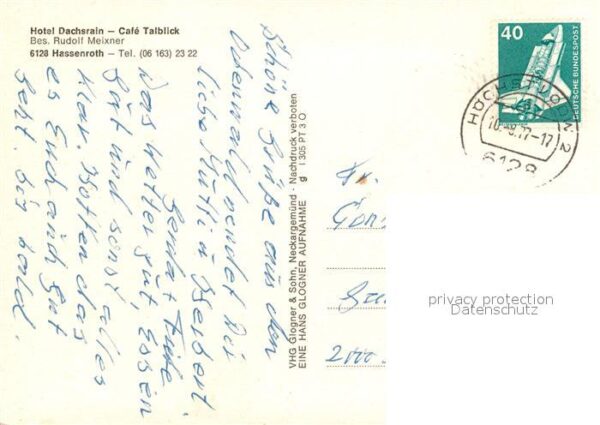 Hotel Dachsrain – Café Talblick
Bes. Rudolf Meixner
6128 Hassenroth – Tel. (06 163) 23 22
Schöne Grüße aus dem
Odenwald sendet Dir
liebe Mutti u. Herbert.
Gerda + Fritz.
Das Wetter gut, Essen
Gut und sonst alles
klar. Hoffen das
es Euch auch gut
geht. Bis bald.
VHG Glogner & Sohn, Neckargemünd - Nachdruck verboten
EINE HANS GLOGNER AUFNAHME g I 305 PT 3 O
40
DEUTSCHE BUNDESPOST
HÖCHST, ODENW 2
a
10.-8.77-17
6128
2000
privacy protection
Datenschutz